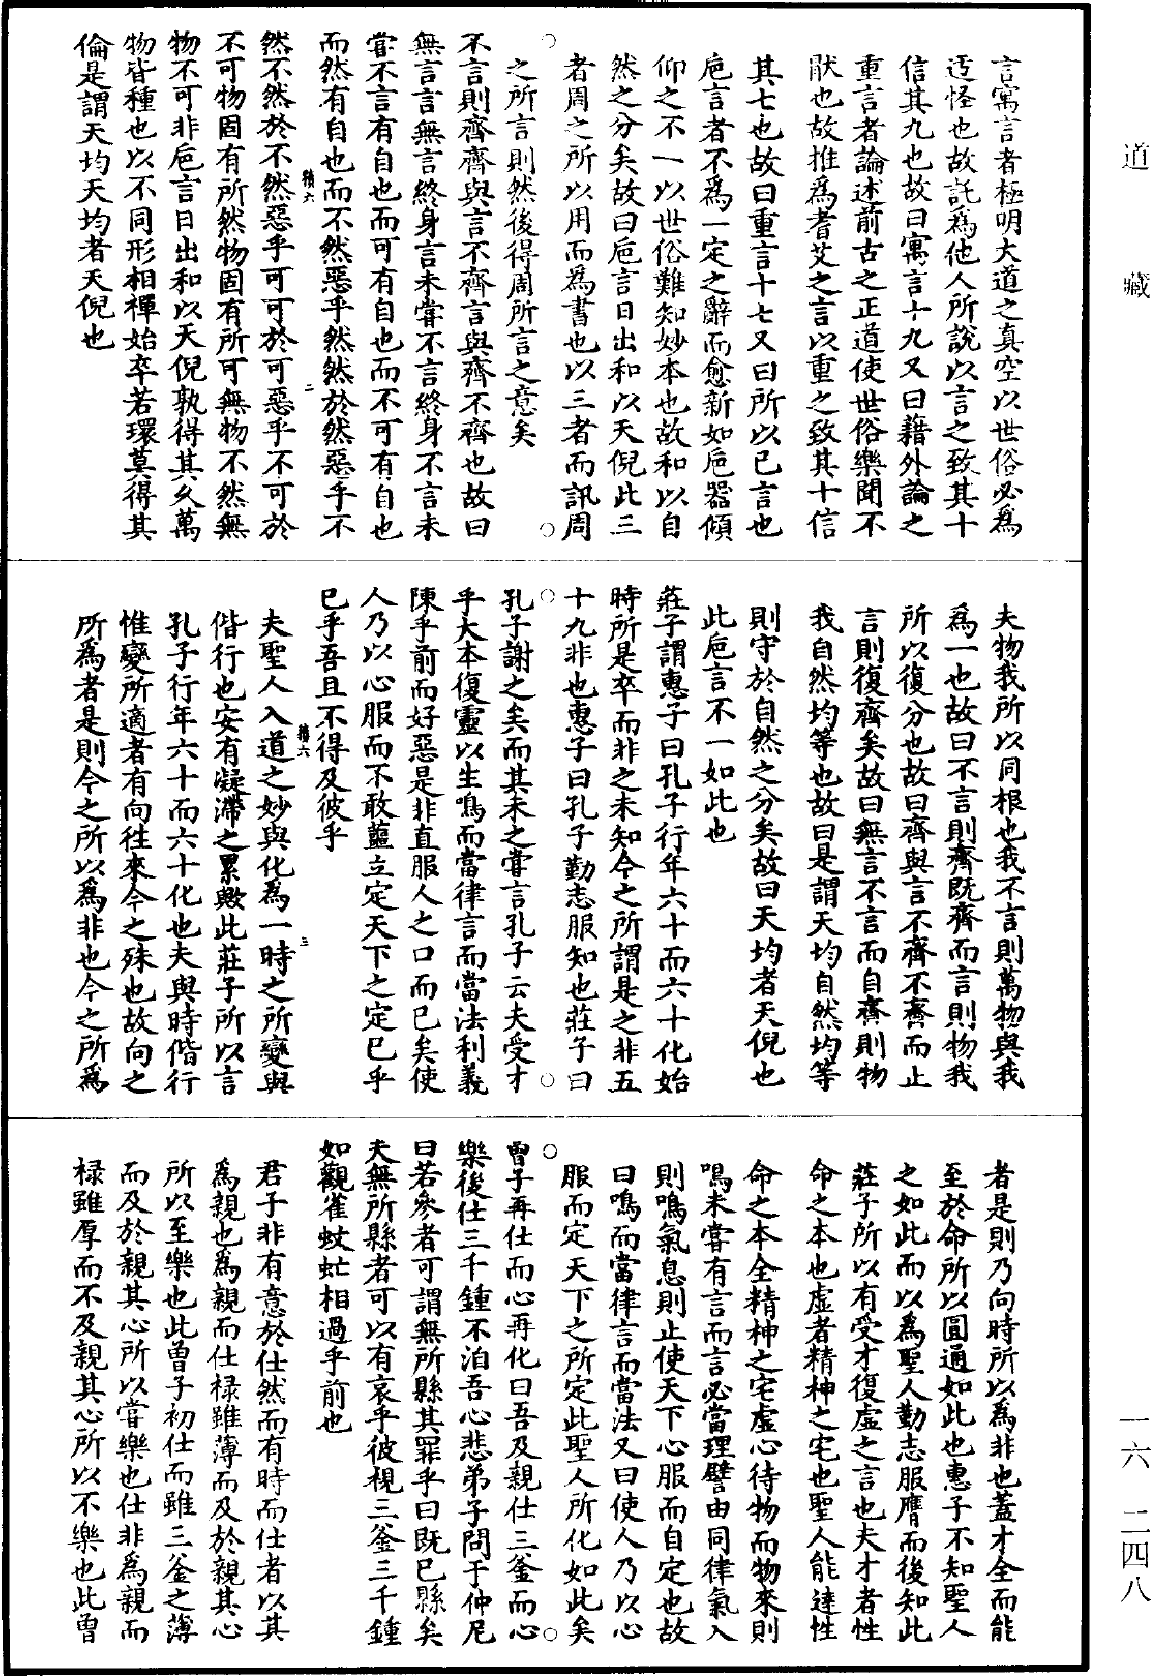 言寓言者極明大道之真空以世俗必為
迂怪也故託為他人所說以言之致其十
信其九也故曰寓言十九又曰藉外論之
重言者論述前古之正道使世俗樂聞不
猒也故推為耆艾之言以重之致其十信
其七也故曰重言十七又曰所以已言也
巵言者不為一定之辭而愈新如巵器傾
仰之不一以世俗難知妙本也故和以自
然之分矣故曰巵言日出和以天倪此三
者周之所以用而為書也以三者而訊周
之所言則然後得周所言之意矣
不言則齊齊與言不齊言與齊不齊也故曰
無言言無言終身言未甞不言終身不言未
甞不言有自也而可有自也而不可有自也
而然有自也而不然惡乎然然於然惡乎不
然不然於不然惡乎可可於可惡乎不可於
不可物固有所然物固有所可無物不然無
物不可非巵言日出和以天倪孰得其久萬
物皆種也以不同形相禪始卒若環莫得其
倫是謂天均天均者天倪也
夫物我所以同根也我不言則萬物與我
為一也故曰不言則齊既齊而言則物我
所以復分也故曰齊與言不齊不齊而止
言則復齊矣故曰無言不言而自齊則物
我自然均等也故曰是謂天均自然均等
則守於自然之分矣故曰天均者天倪也
此巵言不一如此也
莊子謂惠子曰孔子行年六十而六十化始
時所是卒而非之未知今之所謂是之非五
十九非也惠子曰孔子勤志服知也莊子曰
孔子謝之矣而其未之甞言孔子云夫受才
乎大本復靈以生鳴而當律言而當法利義
陳乎前而好惡是非直服人之口而已矣使
人乃以心服而不敢蘁立定天下之定已乎
已乎吾且不得及彼乎
夫聖人入道之妙與化為一時之所變與
偕行也安有凝滯之累歟此莊子所以言
孔子行年六十而六十化也夫與時偕行
惟變所適者有向往來今之殊也故向之
所為者是則今之所以為非也今之所為
者是則乃向時所以為非也蓋才全而能
至於命所以圓通如此也惠子不知聖人
之如此而以為聖人勤志服膺而後知此
莊子所以有受才復虛之言也夫才者性
命之本也虛者精神之宅也聖人能達性
命之本全精神之宅虛心待物而物來則
鳴未甞有言而言必當理譬由同律氣入
則鳴氣息則止使天下心服而自定也故
曰鳴而當律言而當法又曰使人乃以心
服而定天下之所定此聖人所化如此矣
曾子再仕而心再化曰吾及親仕三釜而心
樂後仕三千鍾不洎吾心悲弟子問于仲尼
曰若參者可謂無所縣其罪乎曰既已縣矣
夫無所縣者可以有哀乎彼視三釜三千鍾
如觀雀蚊虻相過乎前也
君子非有意於仕然而有時而仕者以其
為親也為親而仕祿雖薄而及於親其心
所以至樂也此曾子初仕而雖三釜之薄
而及於親其心所以甞樂也仕非為親而
祿雖厚而不及親其心所以不樂也此曾
籍六
二
籍六
三
道藏
一六 二四八